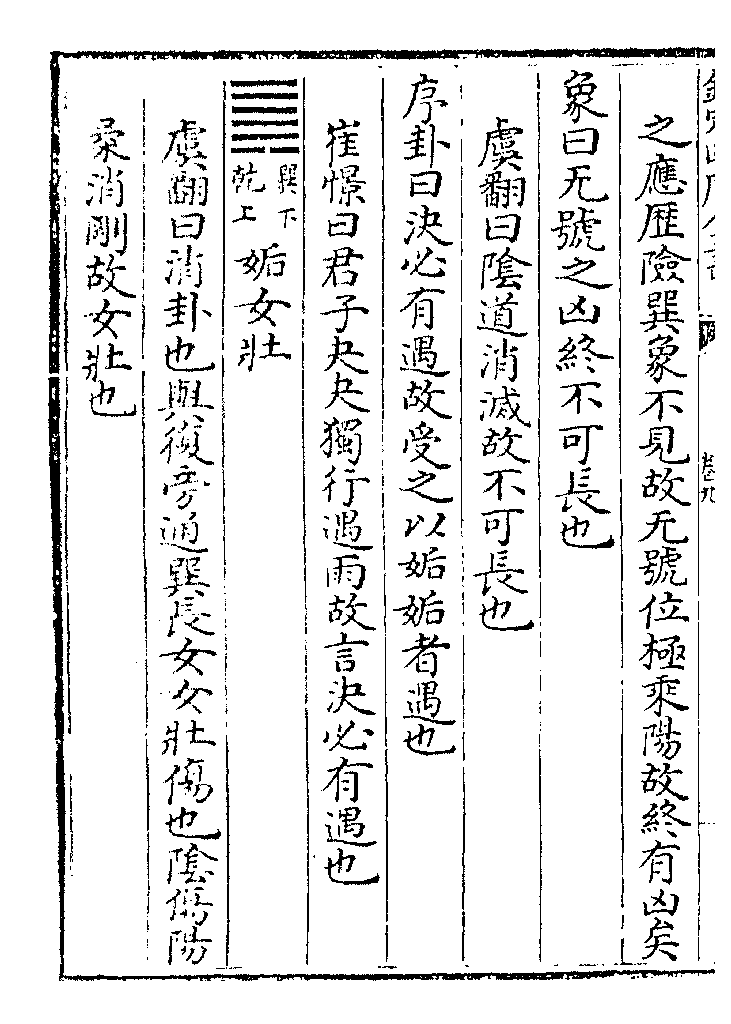 欽定四庫全書 卷九
之應歷險巽象不見故无號位極乘陽故終有凶矣
象曰无號之凶終不可長也
虞翻曰陰道消滅故不可長也
序卦曰決必有遇故受之以姤姤者遇也
崔憬曰君子夬夬獨行遇雨故言決必有遇也
䷫巽下乾上姤女壯
虞翻曰消卦也與復旁通巽長女女壯傷也陰傷陽
柔消剛故女壯也